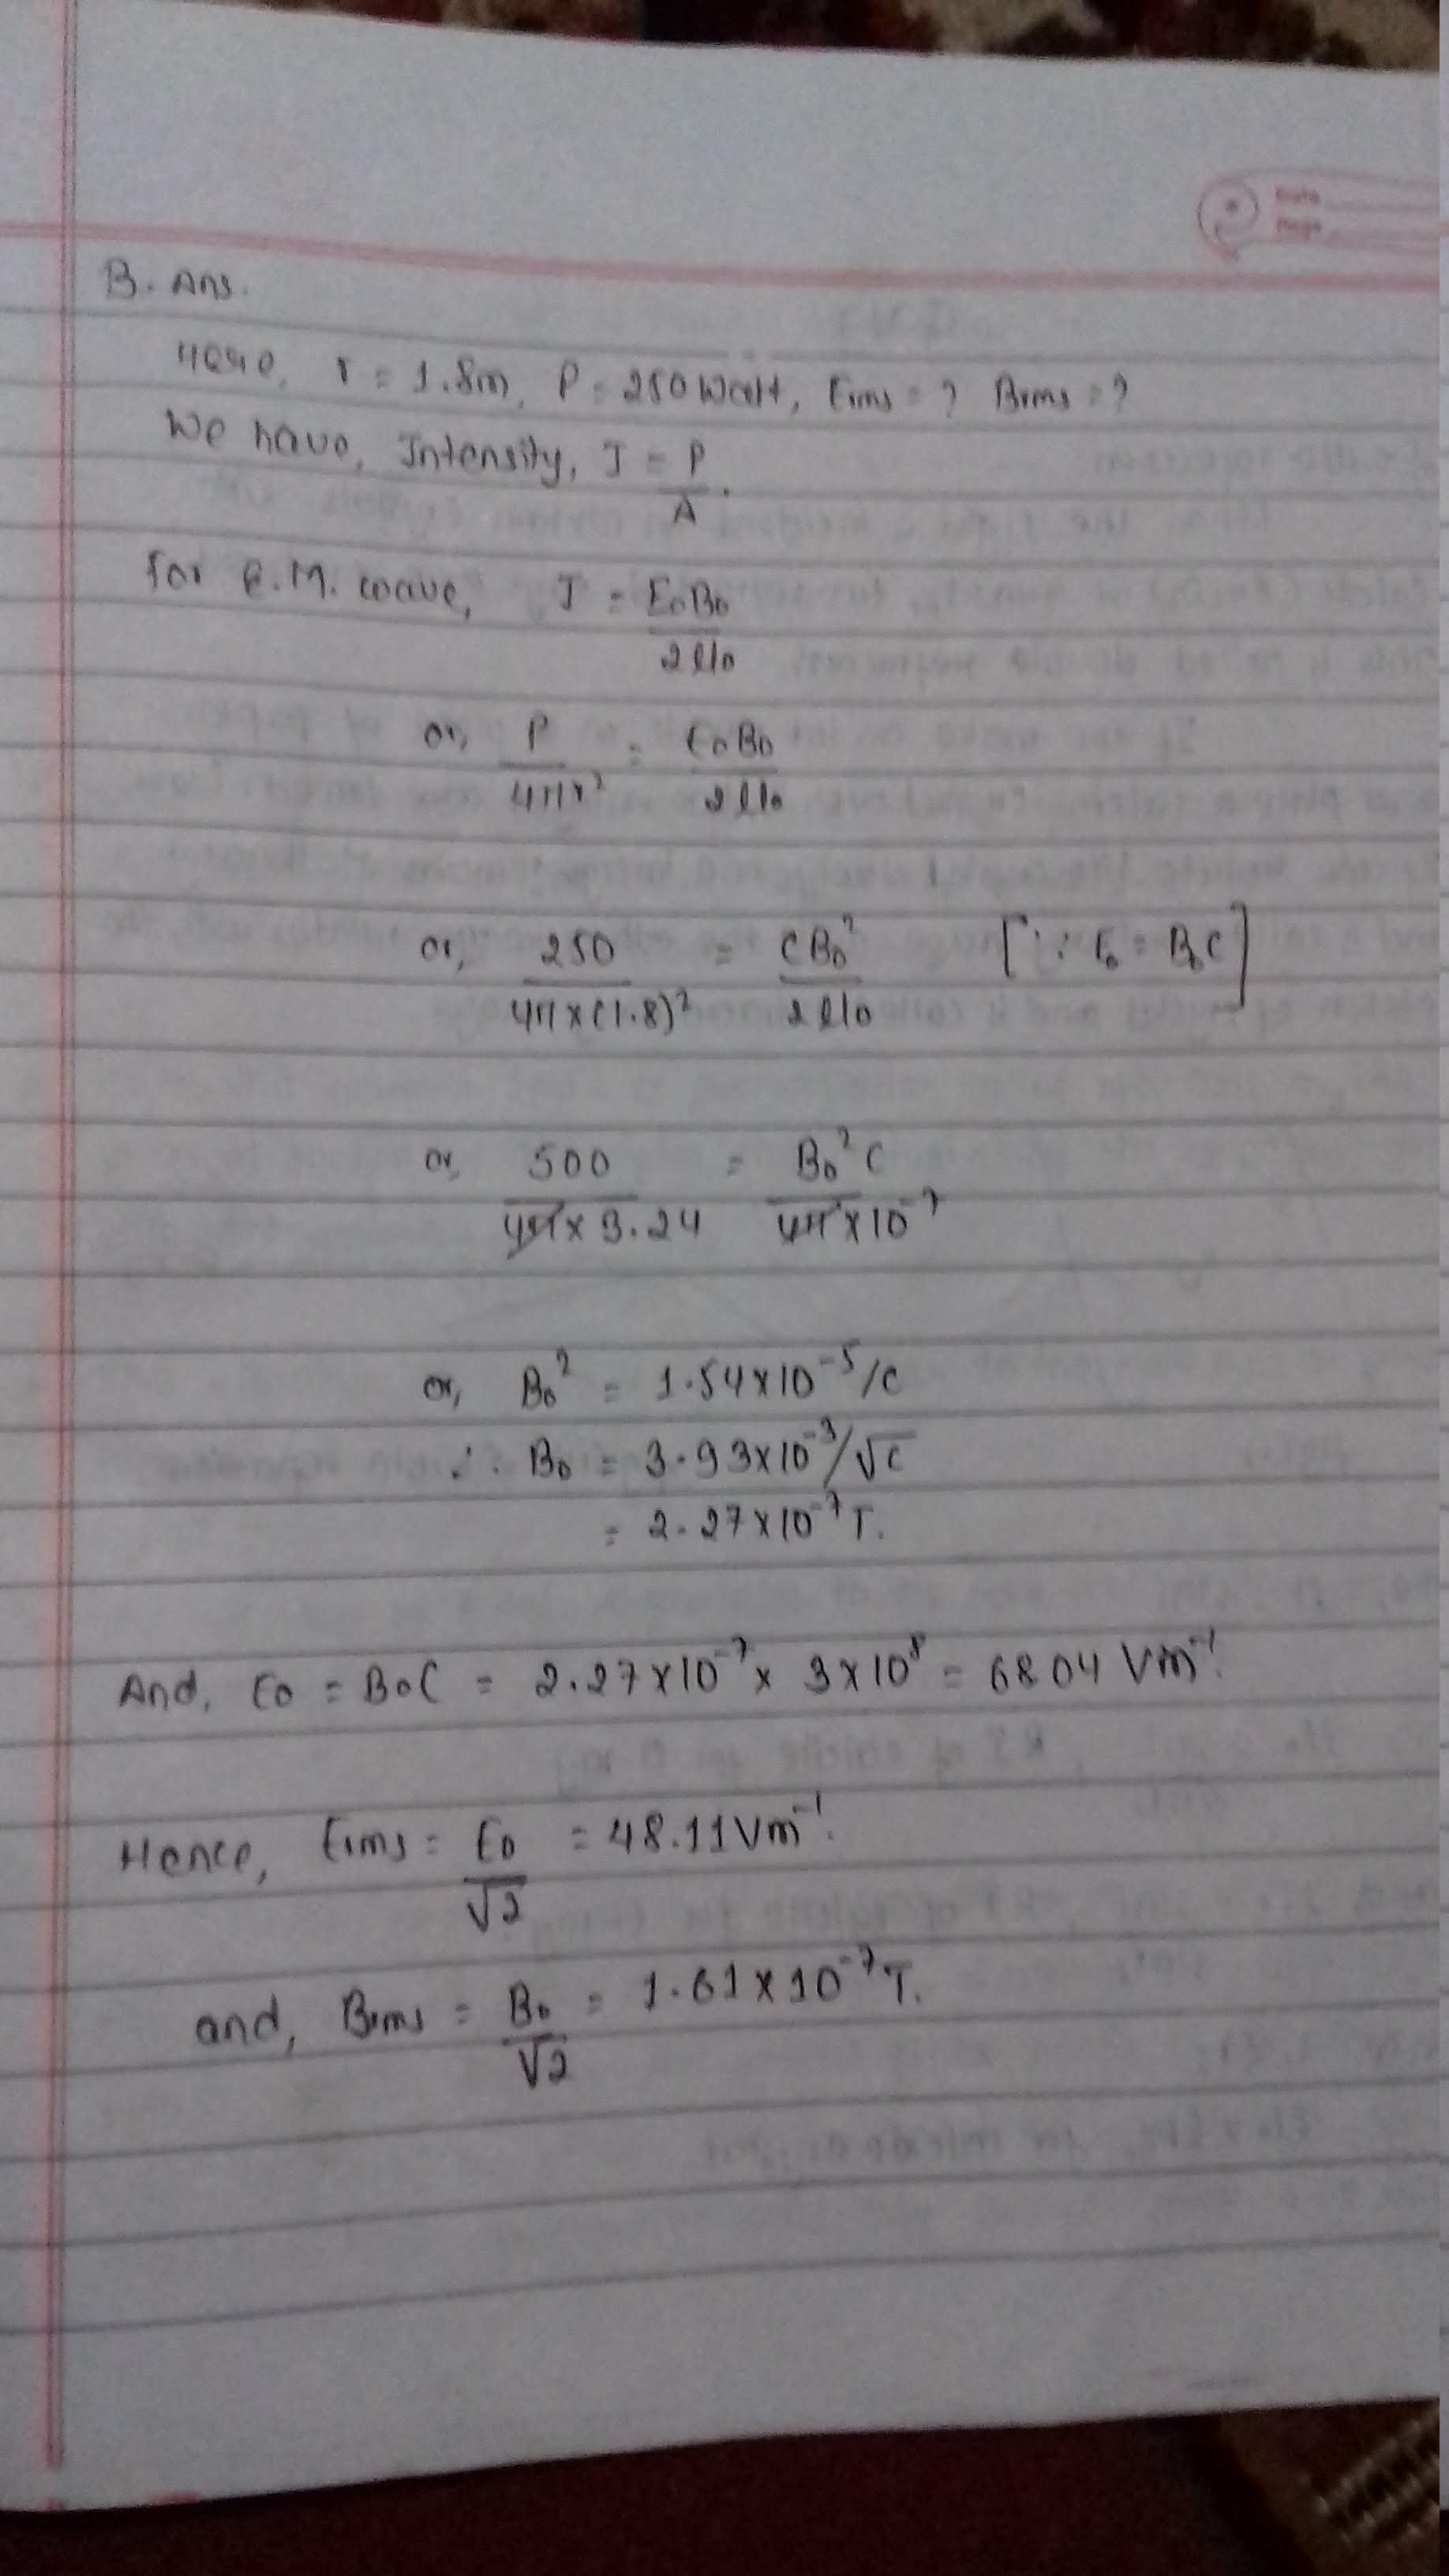 Date
Page
B. Ans.
Here, r = 1.8m, P = 250 Watt, Erms = ? Brms = ?
We have, Intensity, I = P/A.
For E.M. wave, I = E₀B₀/2μ₀
or, P/4πr² = E₀B₀/2μ₀
or, 250/4π×(1.8)² = CB₀²/2μ₀ [∵ E₀ = B₀C]
or, 500/4π×3.24 = B₀²C/4π×10⁻⁷
or, B₀² = 1.54×10⁻⁵/C
∴ B₀ = 3.93×10⁻³/√C
= 2.27×10⁻⁷T.
And, E₀ = B₀C = 2.27×10⁻⁷ × 3×10⁸ = 68.04 Vm⁻¹.
Hence, Erms = E₀/√2 = 48.11Vm⁻¹.
and, Brms = B₀/√2 = 1.61×10⁻⁷T.